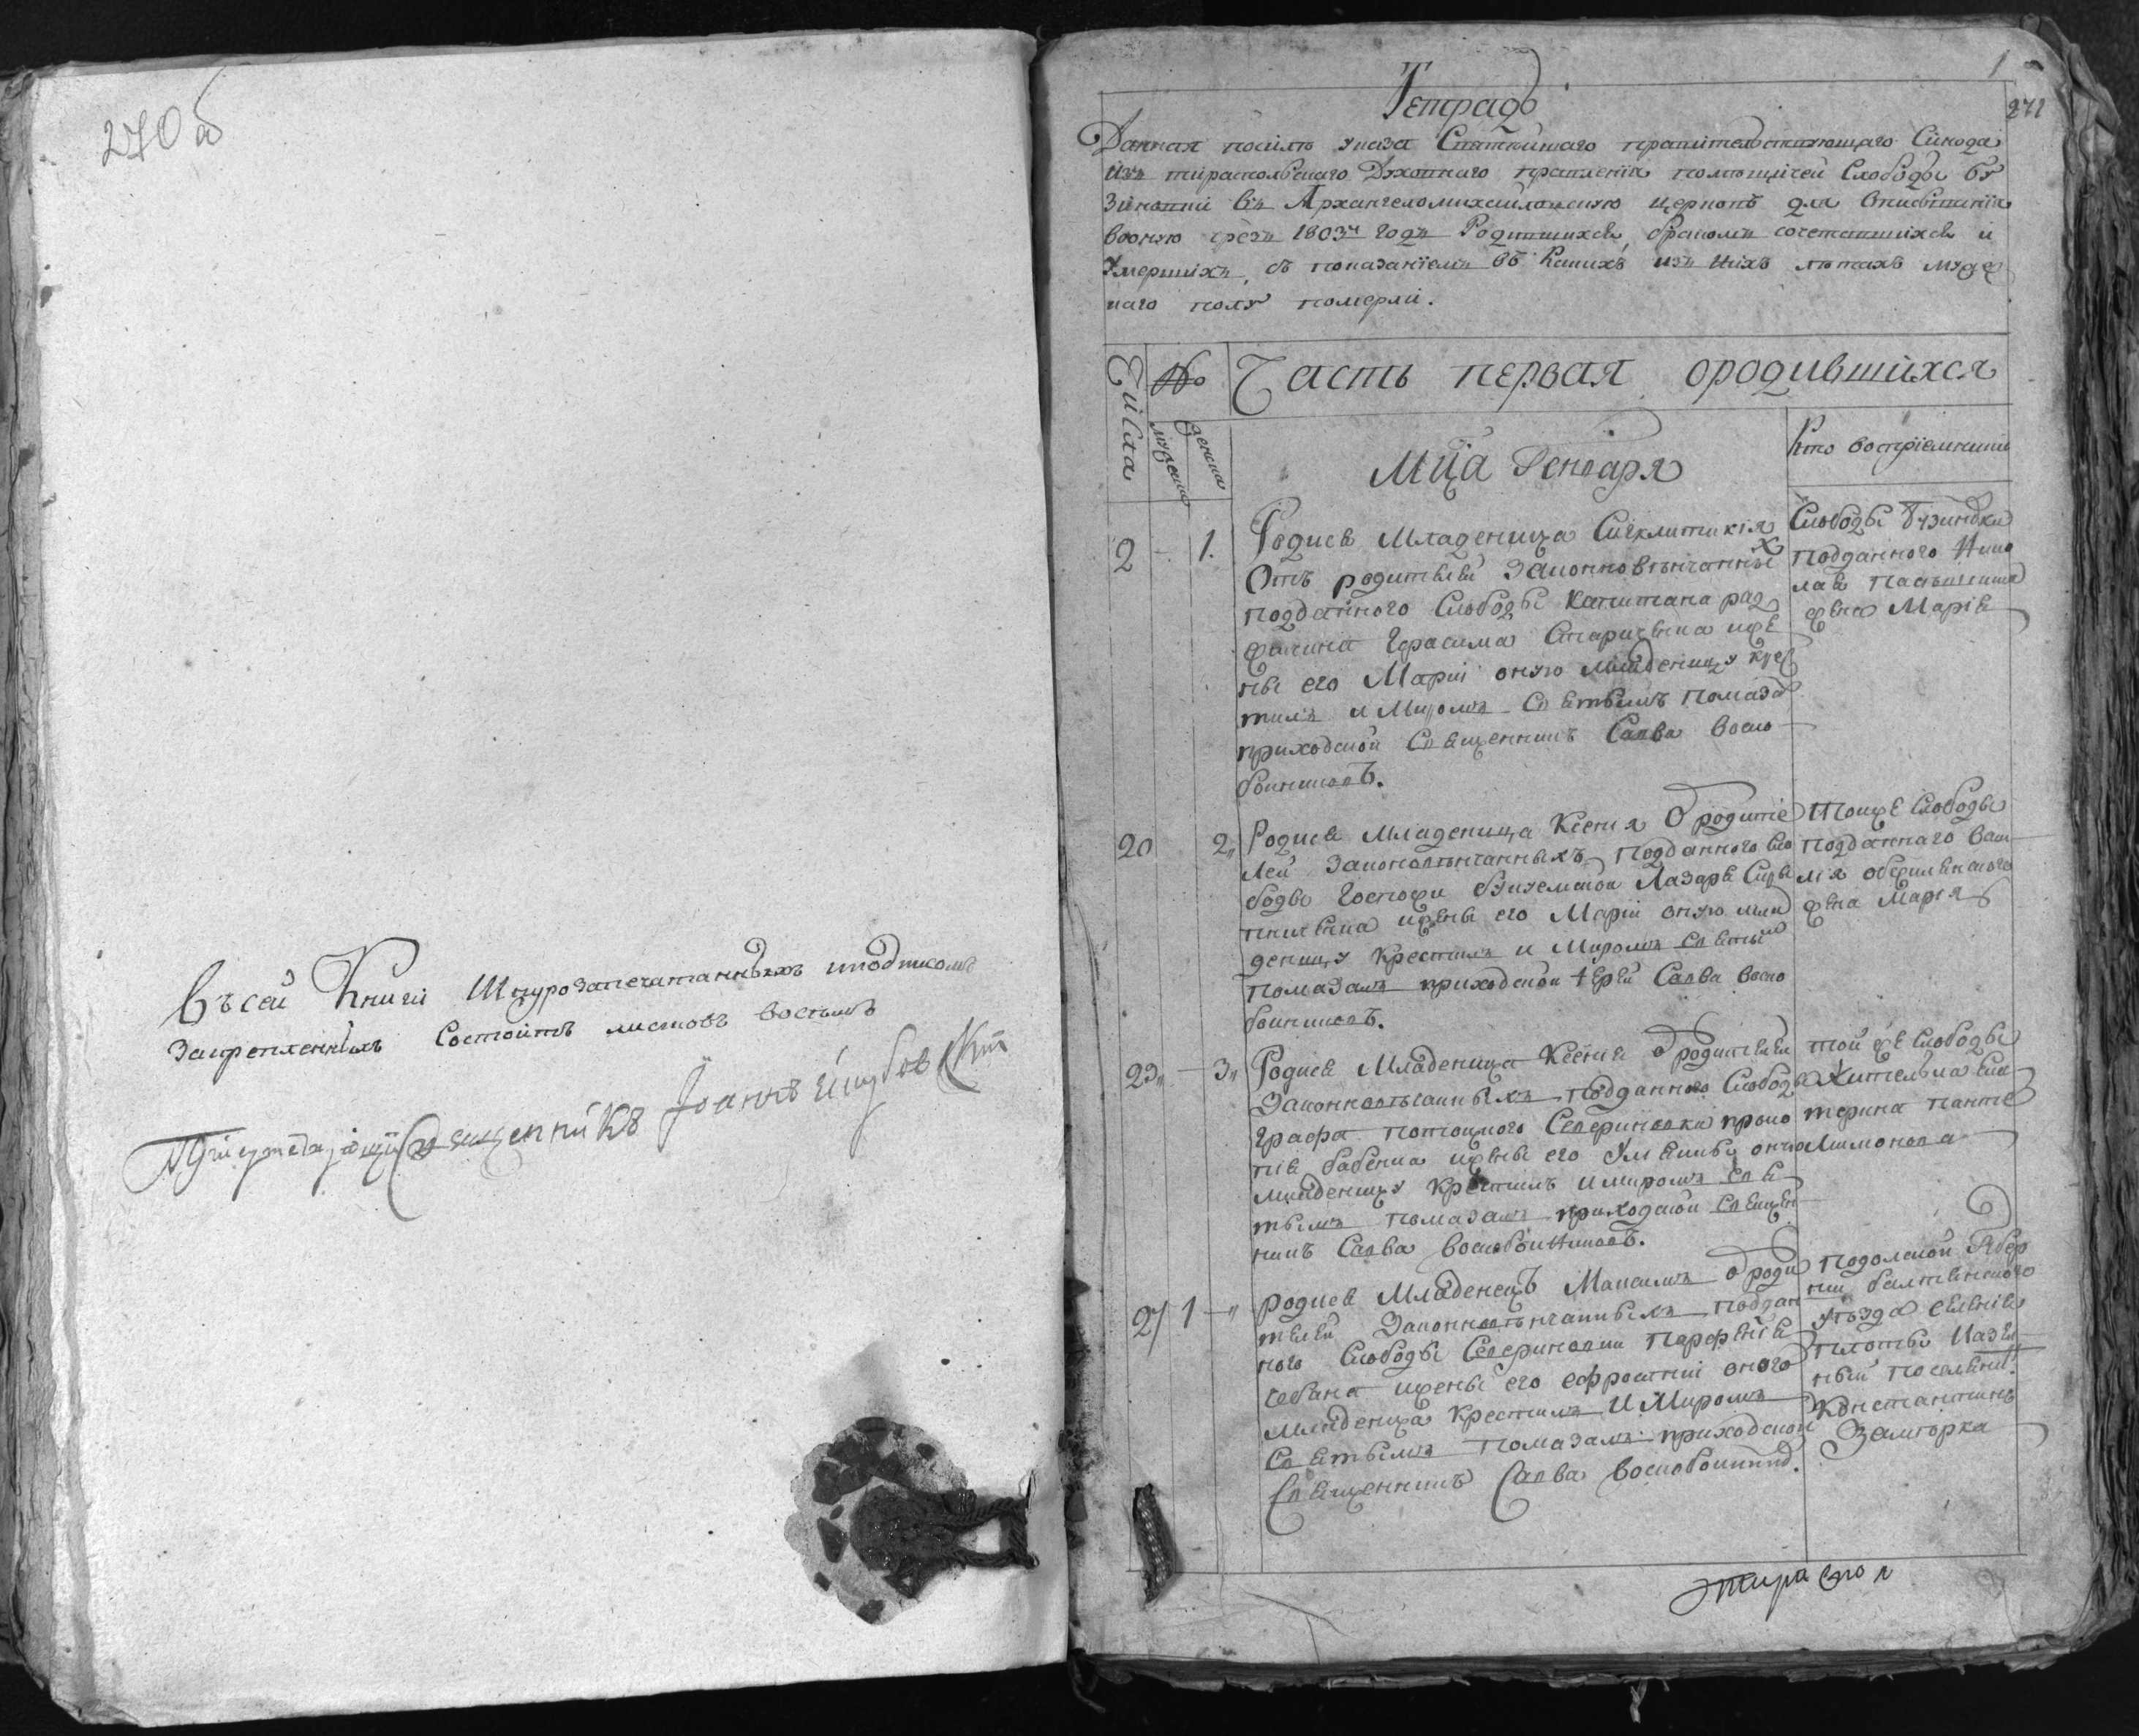 270 об
Въ сей Книги Шнурозапечатанныхъ иподписомъ
Закрепленныхъ Состоитъ листовъ восемъ
Присутствующій Священникъ Іоаннъ
1
271
Тетрадь
Данная посилѣ указа Святѣйшаго правителствующаго Синода
изъ тираспольскаго Духовнаго правленія помѣщичей Слободы Бу
зиновки въ Архангеломихайловскую церковь для вписыванія
вооную чрезъ 1803й годъ Родившихся, бракомъ сочетавшихся и
Умершихъ, съ показаніемъ въ какихъ изъ нихъ лѣтахъ муже
каго полу померли.
Числа
№
Часть первая ородившихся
мужеска
женска
Мца Генваря
Кто воспріемники
2 - 1.
Родися Младеница Сигклитикія
Отъ родителей Законновѣнчанных
подданного Слободы капитана
Герасима ижε
ны его Маріи оную младеницу крес
тилъ и Миромъ Святымъ помаза
приходской Священникъ Савва Воско
бойниковъ.
Слободы Бузиновки
подданного Нико
лая
жена Марія
20 2„
Родися младеница Ксенія О родите
лей Законовѣнчанныхъ подданного Сло
боды Госпожи Лазаря
ижены его Маріи оную мла
деницу крестилъ и Миромъ святым
помазалъ приходской Іерей Савва Воско
бойниковъ.
Тоиже Слободы
подданнаго
жена Марія
23„ - 3„
Родися Младеница Ксенія О родителей
Законновѣнчанныхъ подданного Слободы
Графа потоцкого Севериновки проко
пія бабенка ижены его оную
младеницу крестилъ имиромъ Свя
тымъ помазалъ приходской Священ
никъ Савва Воскобойниковъ.
той же Слободы
Жителька Ека
терина панте
лимонова
27 1 - „
родися Младенецъ Максимъ О роди
телей Законновѣнчанныхъ поддан
ного Слободы Севериновки Парфенія
чебана ижены его ефросиніи оного
младенца крестилъ и Миромъ
Святымъ помазалъ приходской
Священникъ Савва Воскобойник.
подолской Губер
ніи балтянского
уѣзда селенія
плоты Казен
ный поселянин
Константинъ